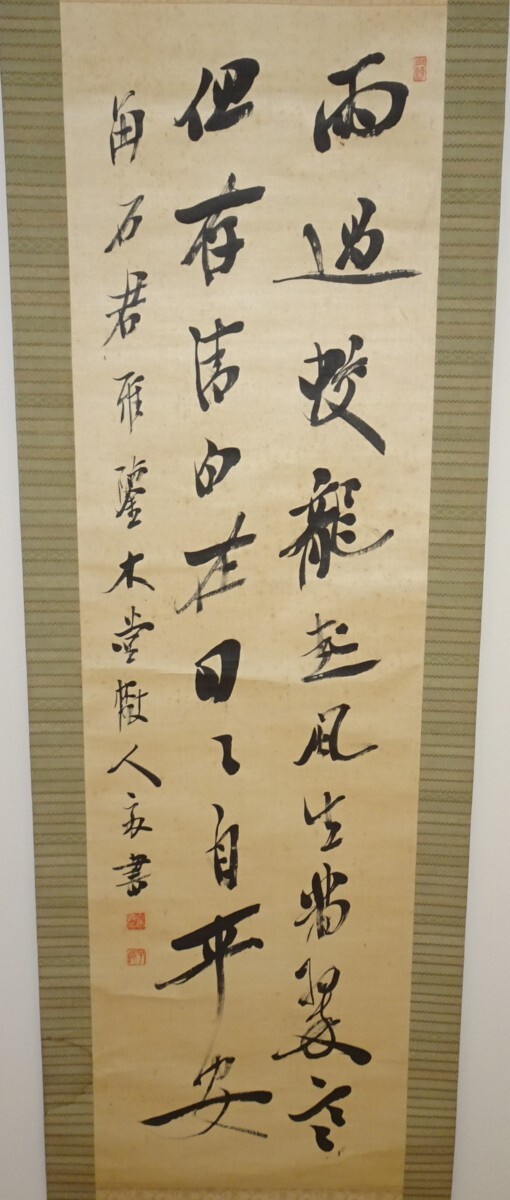 雨過蛟龍起風生翡翠寒
但存清白在日々自平安
角石君雅鑒木堂散人毅書